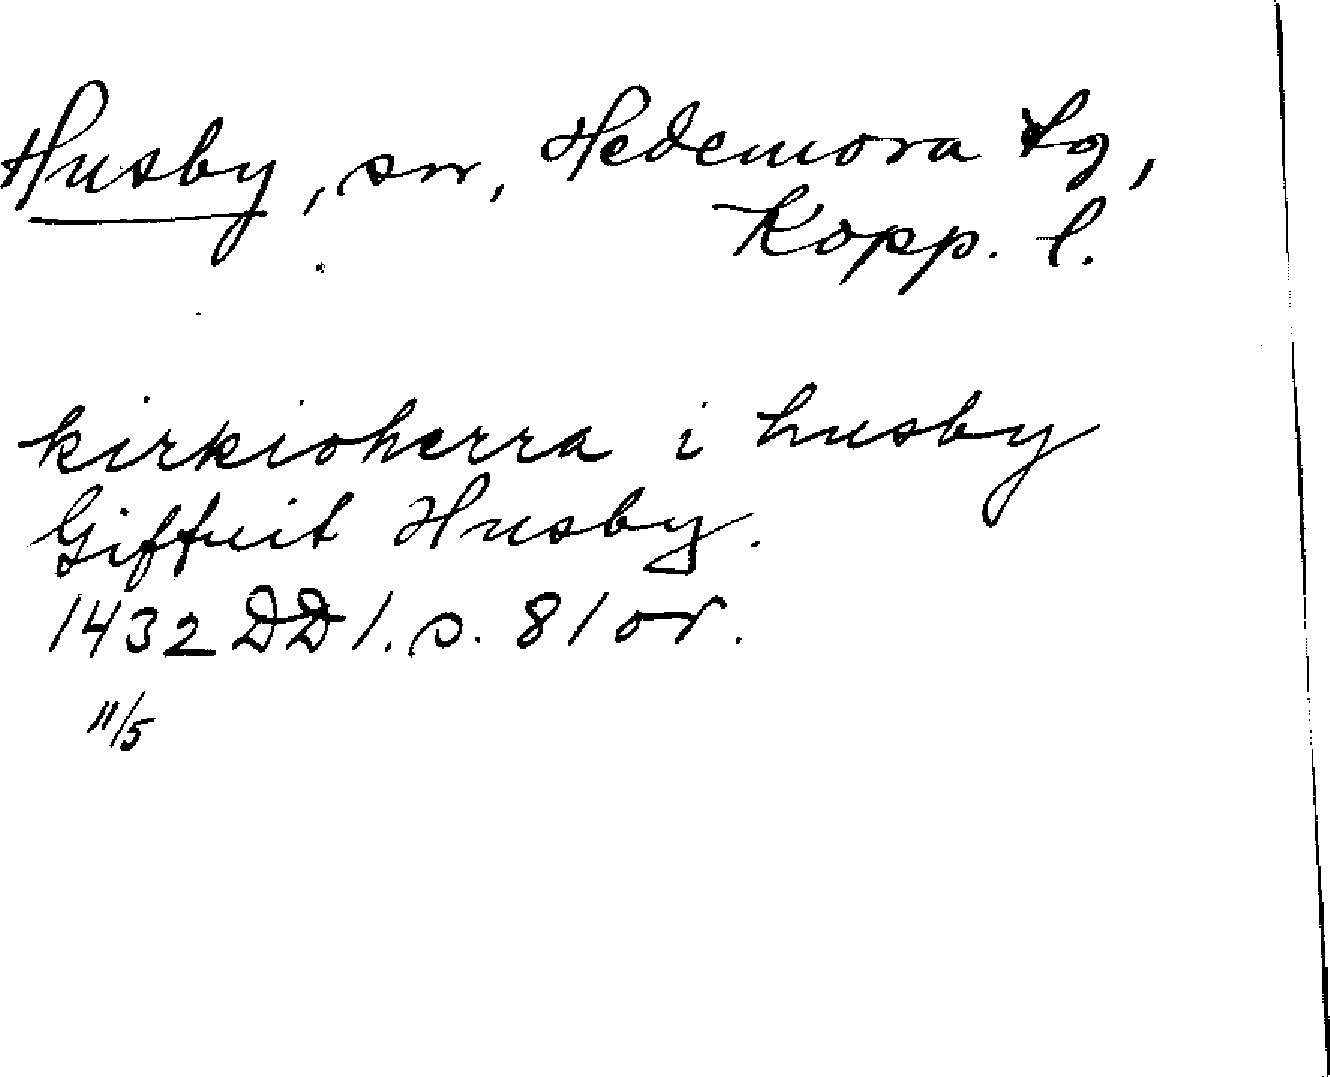 Husby, sn, Hedemora tg,
Kopp. l.
kirkioherra i husby
Giffuit Husby.
1432 DD 1. s. 81 or.
11/5